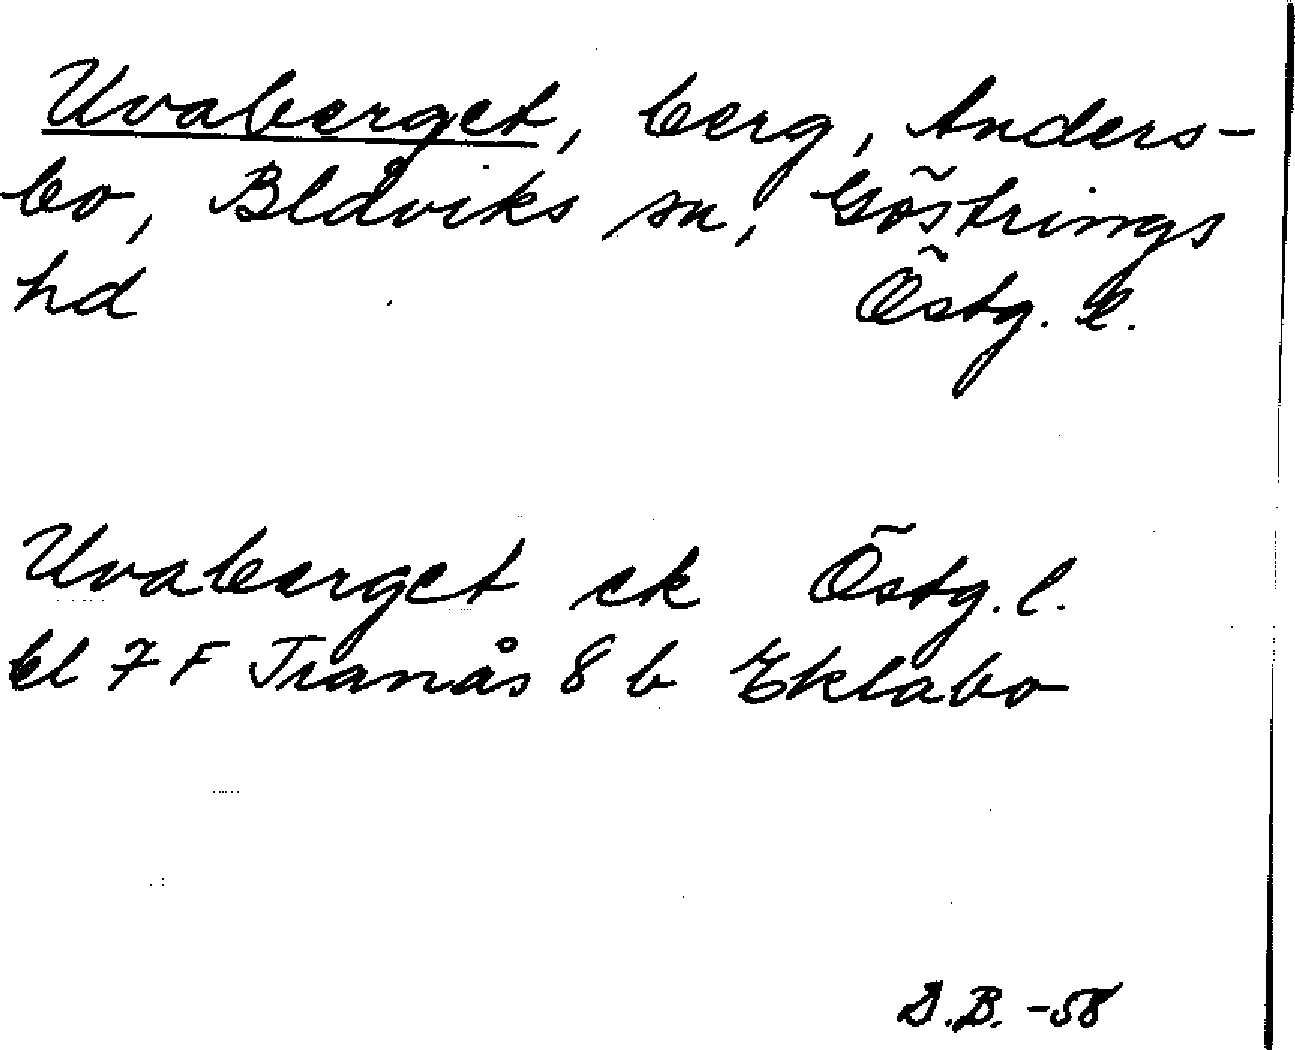 Uvaberget, berg, Anders-
bo, Blåviks sn, Göstrings
hd Östg. l.
Uvaberget ek Östg. l.
bl 7 F Tranås 8 b Eklabo
B.B. -58